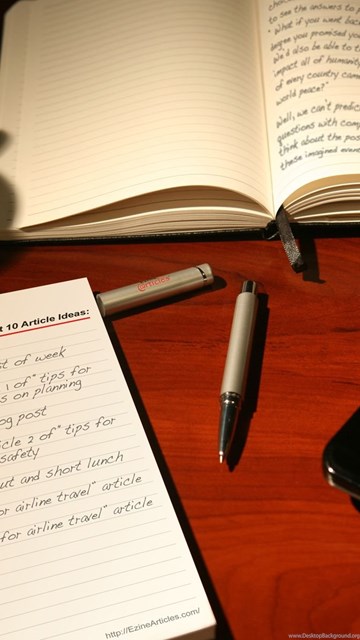 to see the answers to
" What if you went back
degree you promised you
We'd also be able to
impact all of humanity
of every country came
world peace?"
Well, we can't predic
questions with comp
think about the pos
these imagined even
Articles
t 10 Article Ideas:
st of week
1 of " tips for
s on planning
og post
icle 2 of " tips for
safety
ut and short lunch
or airline travel" article
for airline travel" article
http://EzineArticles.com/
www.DesktopBackground.org